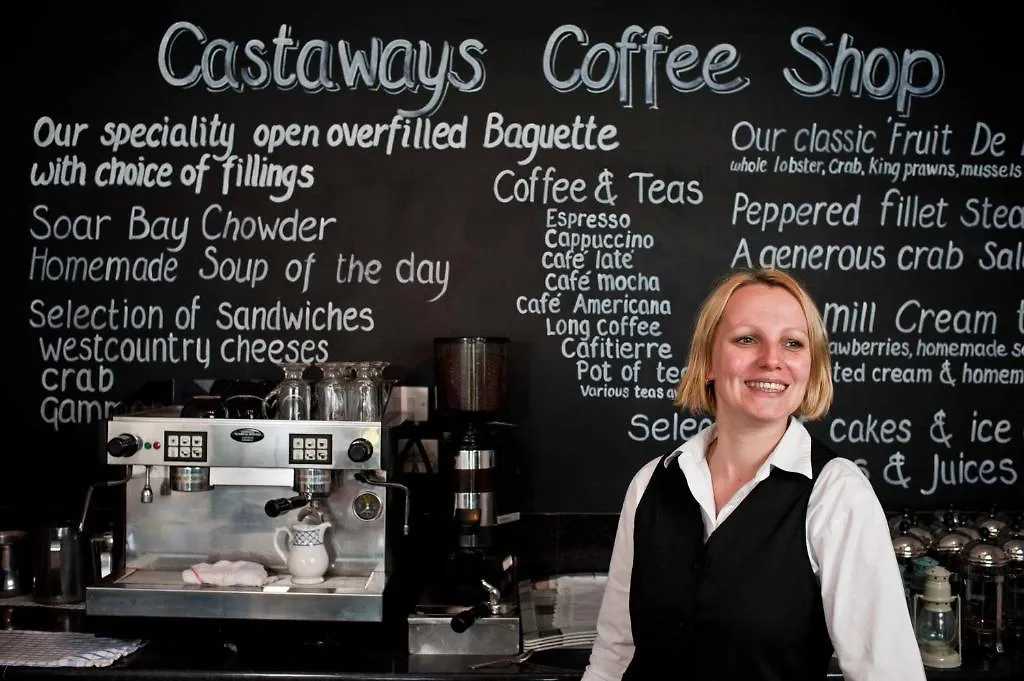 Castaways Coffee Shop
Our speciality open overfilled Baguette
with choice of fillings
Soar Bay Chowder
Homemade Soup of the day
Selection of Sandwiches
westcountry cheeses
crab
Gamm
Coffee & Teas
Espresso
Cappuccino
Café late
Café mocha
Café Americana
Long coffee
Cafitierre
Pot of tea
Various teas
Our classic 'Fruit De
whole lobster, Crab, King prawns, mussels
Peppered fillet Stea
A generous crab Sal
mill Cream
awberries, homemade
ted cream & homem
Selec cakes & ice
s & Juices